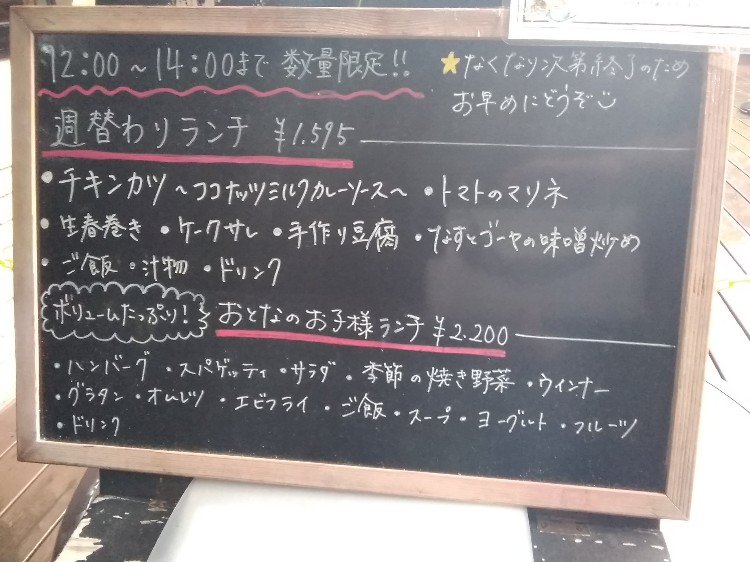 12:00～14:00まで 数量限定!!
★なくなり次第終了のため
お早めにどうぞ
週替わりランチ ¥1.595
・チキンカツ～ココナッツミルクカレーソース～ ・トマトのマリネ
・生春巻き ・ケークサレ ・手作り豆腐 ・なすとゴーヤの味噌炒め
・ご飯 ・汁物 ・ドリンク
ボリュームたっぷり! おとなのお子様ランチ ¥2.200
・ハンバーグ ・スパゲッティ ・サラダ ・季節の焼き野菜 ・ウィンナー
・グラタン ・オムレツ ・エビフライ ・ご飯 ・スープ ・ヨーグルト ・フルーツ
・ドリンク